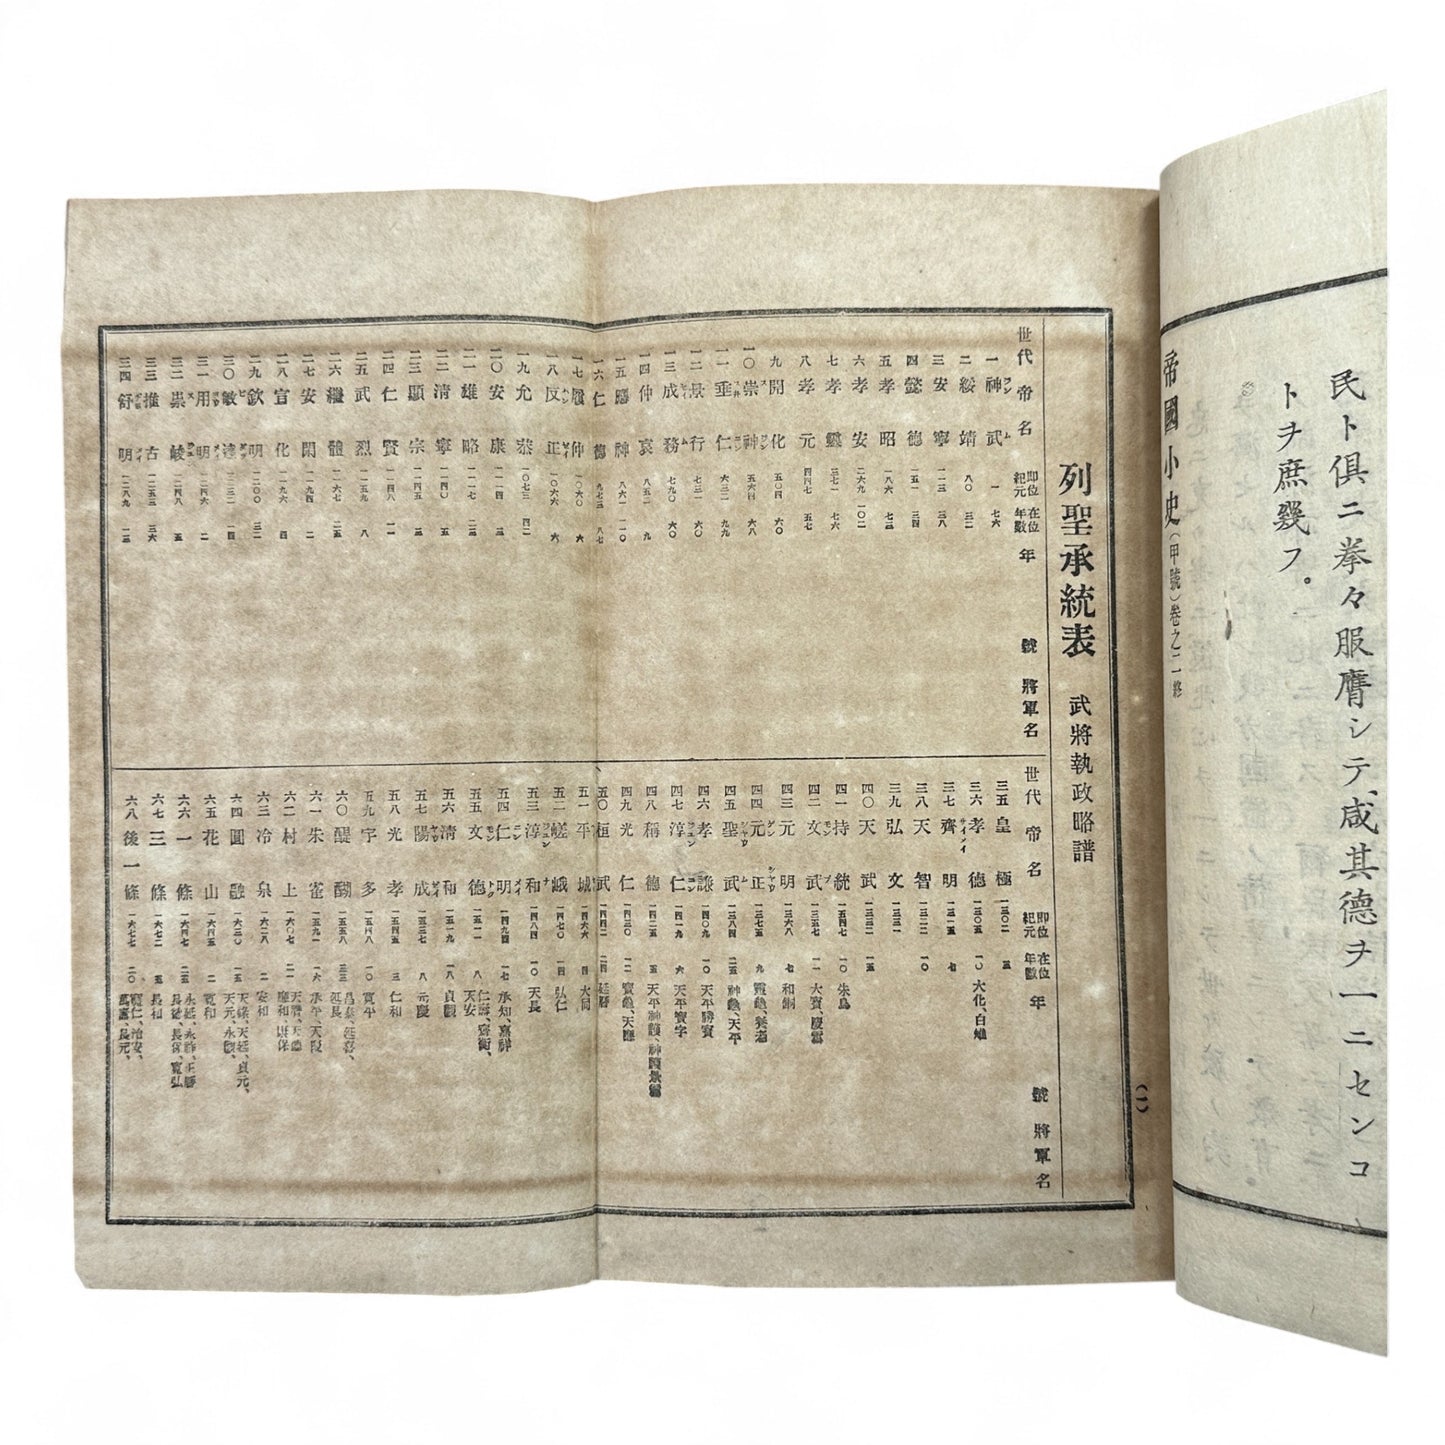 民ト俱ニ拳々服膺シテ、咸其德ヲ一ニセンコ
トヲ庶幾フ。
帝國小史(甲號)卷之二終
(一)
列聖承統表 武將執政略譜
世代 帝名 即位紀元 在位年數 年號 將軍名
一 神武 一 七六
二 綏靖 八〇 三二
三 安寧 一一三 三八
四 懿德 一五一 三四
五 孝昭 一八六
六 孝安 二六九 一〇二
七 孝靈 三七一 七六
八 孝元 四四七 五七
九 開化 五〇四 六〇
一〇 崇神 五六四 六八
一一 垂仁 六三二 九九
一二 景行 七三一 六〇
一三 成務 七九〇 六〇
一四 仲哀 八五二 九
一五 應神 八六一 一一〇
一六 仁德 九七三 八七
一七 履仲 一〇六〇 六
一八 反正 一〇六六 六
一九 允恭 一〇七三 四二
二〇 安康 一一一四 三
二一 雄略 一一一七
二二 清寧 一一四〇 五
二三 顯宗 一一四五 三
二四 仁賢 一一四八 一一
二五 武烈 一一五九 八
二六 繼體 一一六七 二五
二七 安閑 一一九四 二
二八 宣化 一一九六 四
二九 欽明 一二〇〇 三二
三〇 敏達 一二三二 一四
三一 用明 一二四六 二
三二 崇峻 一二四八 五
三三 推古 一二五三 三六
三四 舒明 一二八九 一三
世代 帝名 即位紀元 在位年數 年號 將軍名
三五 皇極 一三〇二 三
三六 孝德 一三〇五 一〇 大化、白雉
三七 齊明 一三一五 七
三八 天智 一三二二 一〇
三九 弘文
四〇 天武 一三三二 一五
四一 持統 一三四七 一〇 朱鳥
四二 文武 一三五七 一一 大寶、慶雲
四三 元明 一三六八 七 和銅
四四 元正 一三七五 九 靈龜、養老
四五 聖武 一三八四 二五 神龜、天平
四六 孝謙 一四〇九 一〇 天平勝寶
四七 淳仁 一四一九 六 天平寶字
四八 稱德 一四二五 五 天平神護、神護景雲
四九 光仁 一四三〇 一二 寶龜、天應
五〇 桓武 一四四二 二四 延曆
五一 平城 一四六六 四 大同
五二 嵯峨 一四七〇 一四 弘仁
五三 淳和 一四八四 一〇 天長
五四 仁明 一四九四 一七 承和、嘉祥
五五 文德 一五一一 八 仁壽、齊衡、天安
五六 清和 一五一九 一八 貞觀
五七 陽成 一五三七 八 元慶
五八 光孝 一五四五 三 仁和
五九 宇多 一五四八 一〇 寬平
六〇 醍醐 一五五八 三三 昌泰、延喜、延長
六一 朱雀 一五九一 一六 承平、天慶
六二 村上 一六〇七 二一 天曆、天德、應和、康保
六三 冷泉 一六二八 二 安和
六四 圓融 一六三〇 一五 天祿、天延、貞元、天元、永觀、
六五 花山 一六四五 二 寬和
六六 一條 一六四七 二五 永延、永祚、正曆、長德、長保、寬弘
六七 三條 一六七二 五 長和
六八 後一條 一六七七 二〇 寬仁、治安、萬壽、長元、